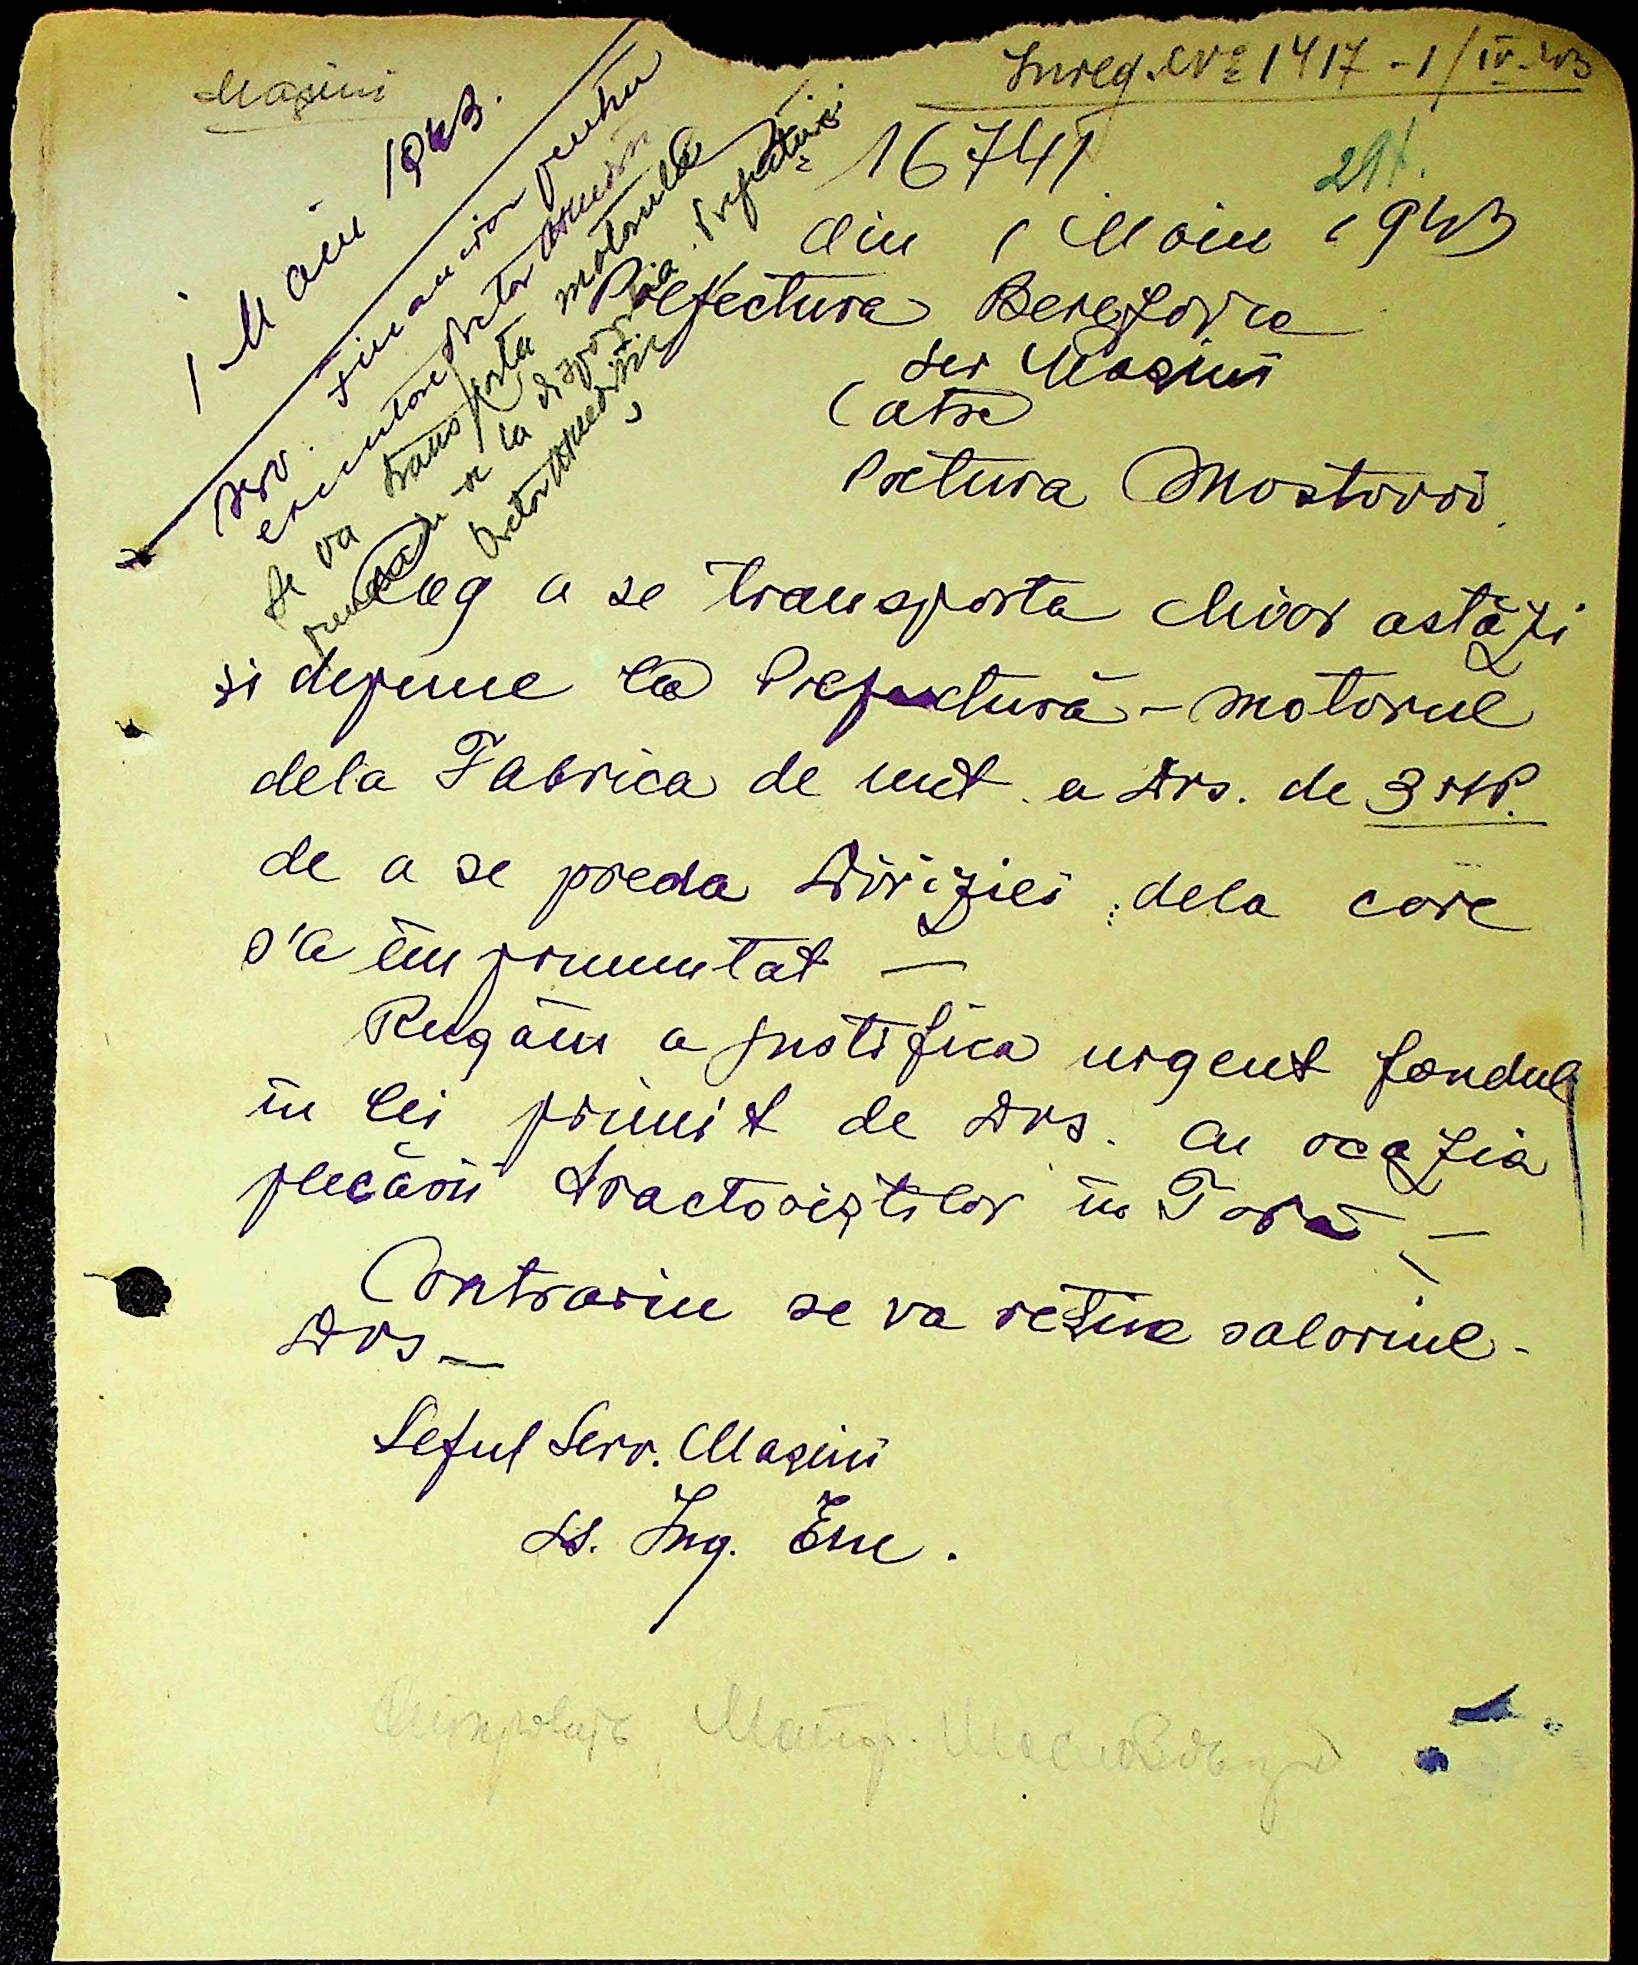 Mașini
Inreg. № 1417 - 1/IV-43
1 Maiu 1943.
Serv. financiar pentru
executare
Se va transporta motorul
la dispoziția Prefecturii
№ 16741
291.
din 1 Maiu 1943
Prefectura Berezovca
Ser Mașini
Catre
Pretura Mostovoi
Rog a se transporta chiar astăzi
și depune la Prefectură - motorul
dela Fabrica de unt a Dvs. de 3 HP.
de a se preda Diviziei dela care
s'a împrumutat —
Rugăm a justifica urgent fondul
în lei primit de Dvs. cu ocazia
plecării tractoriștilor în Țară —
Contrariu se va reține salariul -
Dvs —
Șeful Serv. Mașini
ss. Ing. Ene.